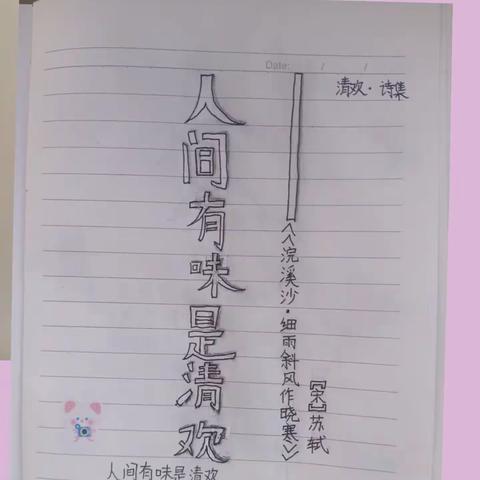 Date: / /
清欢·诗集
人间有味是清欢
《浣溪沙·细雨斜风作晓寒》
【宋】苏轼
人间有味是清欢